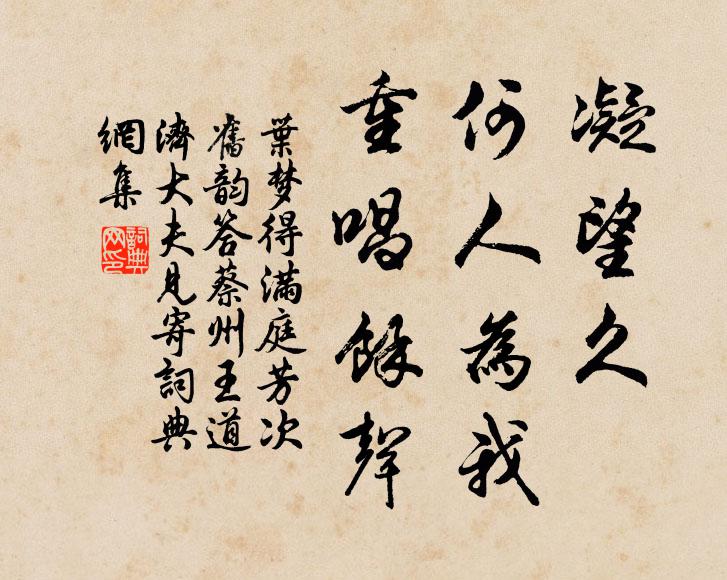 凝望久
何人為我
重唱餘聲
葉梦得满庭芳次
舊韵答蔡州王道
濟大夫見寄詞典
網集
詞典網印